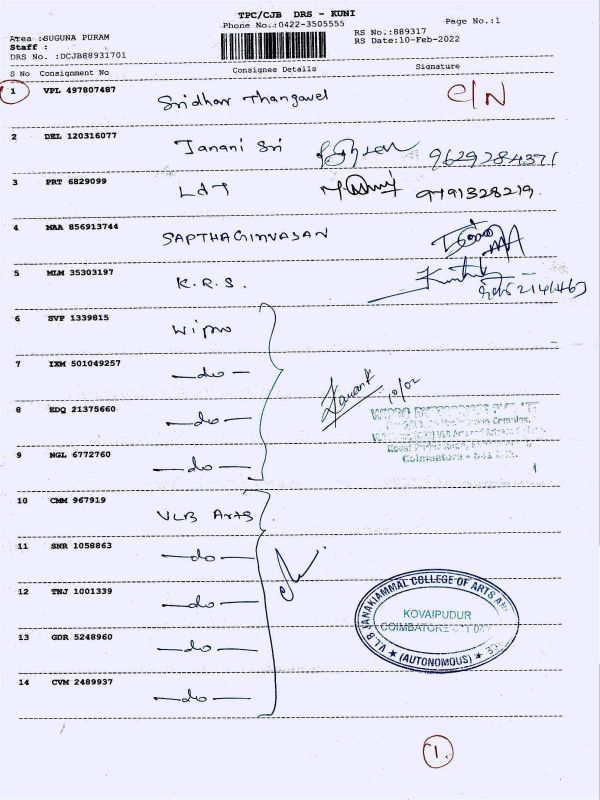 TPC/CJB DRS - KUNI
Phone No.:0422-3505555
Page No.:1
Area :SUGUNA PURAM
RS No.:889317
Staff :
RS Date:10-Feb-2022
DRS No. :DCJB88931701
S No Consignment No Consignee Details Signature
1 VPL 497807487 Sridhar Thangavel C/N
2 DEL 120316077 Janani Sri 9629284371
3 PRT 6829099 L&T 9791328219.
4 MAA 856913744 SAPTHAGIRIVASAN
5 MLM 35303197 K.R.S.
6 SVP 1339815 Wipro
7 IXM 501049257 —do—
8 EDQ 21375660 —do— 10/02
9 NGL 6772760 —do—
Coimbatore
10 CMM 967919 VLB Arts
11 SNR 1058863 —do—
12 TNJ 1001339 —do—
13 GDR 5248960 —do—
14 CVM 2489937 —do—
V.L.B JANAKIAMMAL COLLEGE OF ARTS
KOVAIPUDUR
COIMBATORE
★ (AUTONOMOUS) ★
1.